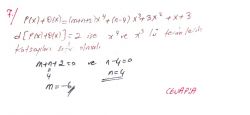 7/
P(x)+Q(x)=(m+n+2)x⁴+(n-4)x³+3x²+x+3
d[P(x)+Q(x)]=2 ise x⁴ ve x³ lü terimlerin
katsayıları sıfır olmalı
m+n+2=0 ve n-4=0
4
n=4
m=-6
CEVAP:A